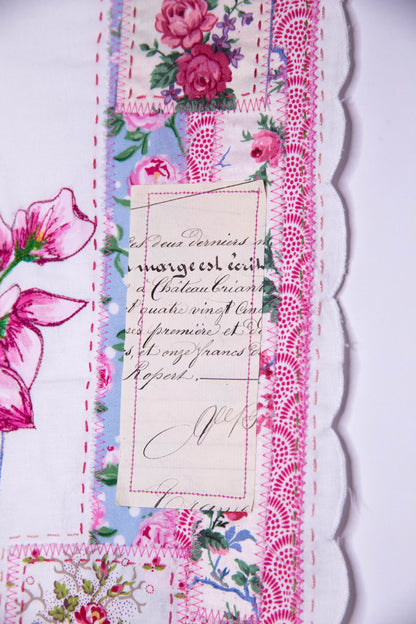 es deux derniers
marge est écrit
à Château Briant
t quatre vingt Cinq
ses première et d
s, et onze francs d
Ropert.